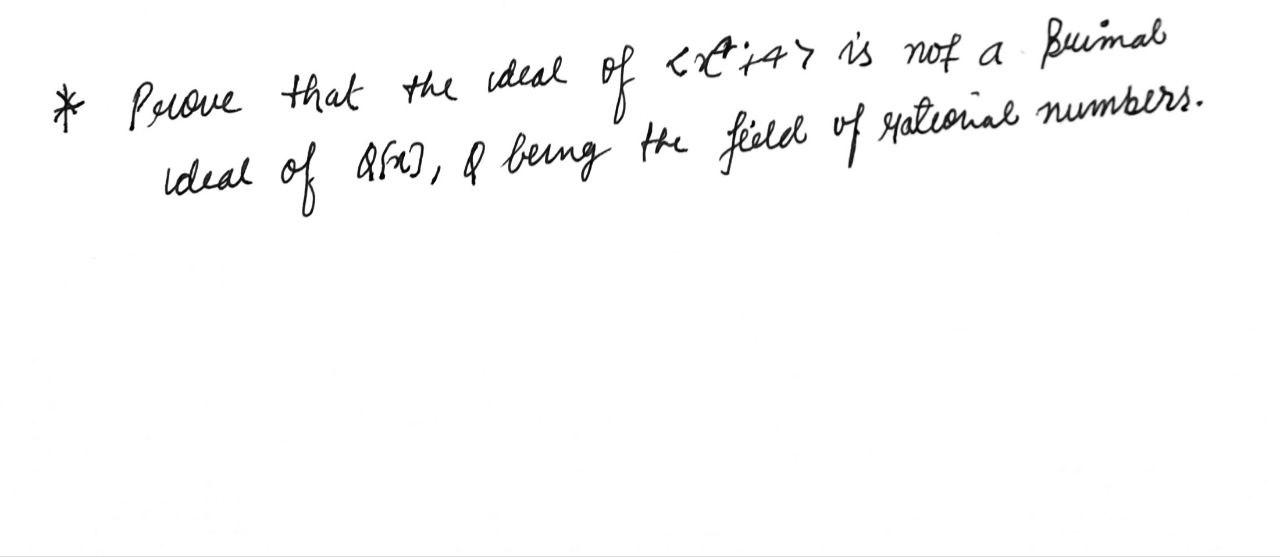 * Prove that the ideal of <x⁴+4> is not a Primal
ideal of Q[x], Q being the field of rational numbers.